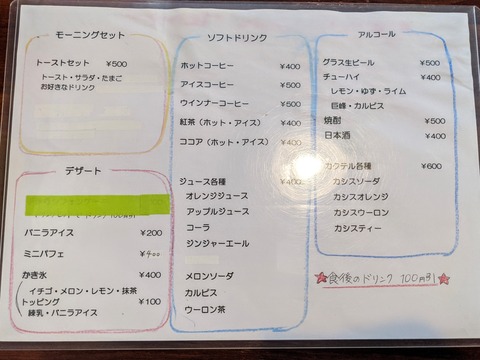 モーニングセット
トーストセット ¥500
トースト・サラダ・たまご
お好きなドリンク
デザート
バニラアイス ¥200
ミニパフェ ¥400
かき氷 ¥400
イチゴ・メロン・レモン・抹茶
トッピング ¥100
練乳・バニラアイス
ソフトドリンク
ホットコーヒー ¥400
アイスコーヒー ¥500
ウインナーコーヒー ¥500
紅茶(ホット・アイス) ¥400
ココア(ホット・アイス) ¥400
ジュース各種 ¥400
オレンジジュース
アップルジュース
コーラ
ジンジャーエール
メロンソーダ
カルピス
ウーロン茶
アルコール
グラス生ビール ¥500
チューハイ ¥400
レモン・ゆず・ライム
巨峰・カルピス
焼酎 ¥500
日本酒 ¥400
カクテル各種 ¥600
カシスソーダ
カシスオレンジ
カシスウーロン
カシスティー
食後のドリンク 100円引